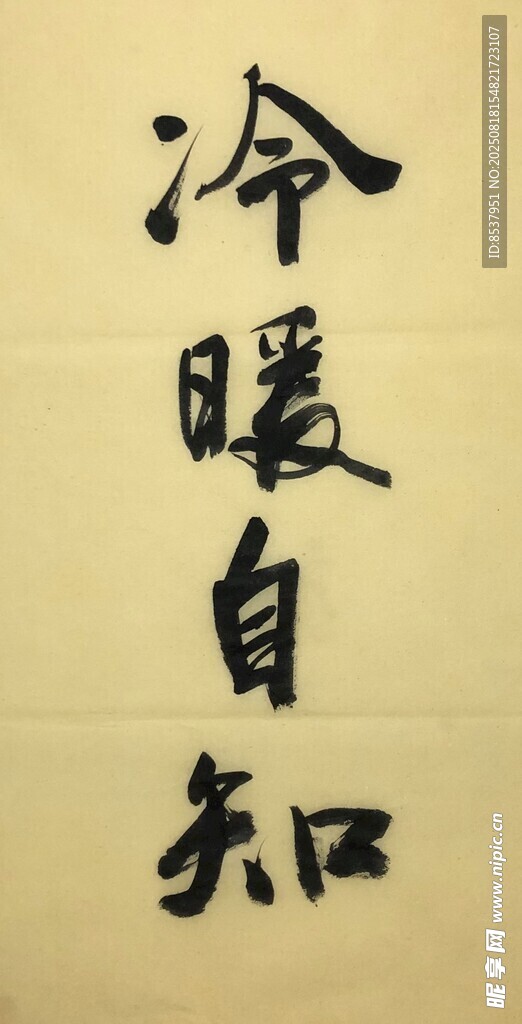 冷暖自知
ID:8537951 NO:20250818154821723107
昵享网 www.nipic.cn